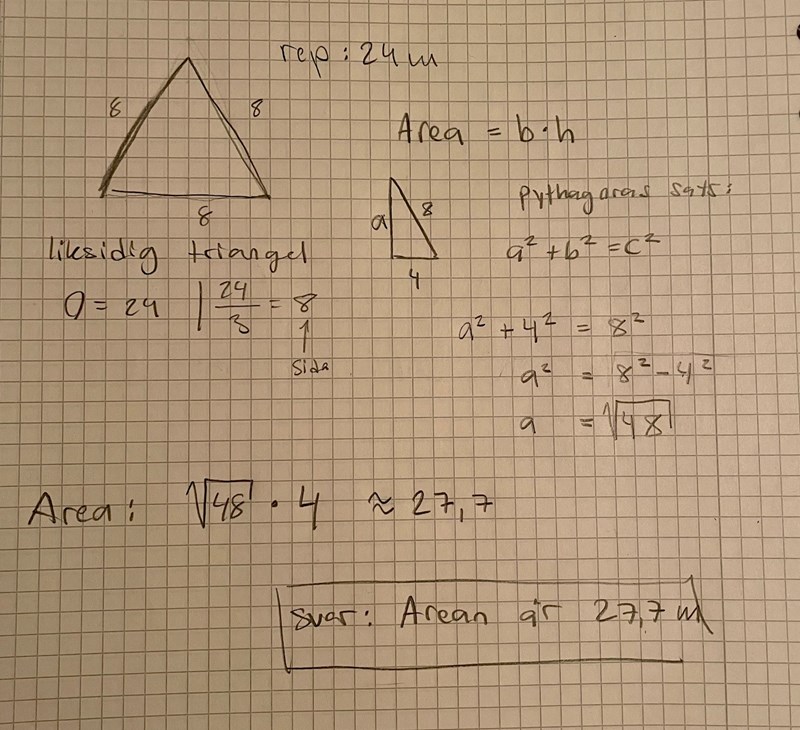 rep: 24 m
8 8
8
Area = b·h
a 8
4
Pythagoras sats:
a² + b² = c²
liksidig triangel
O = 24 | 24/3 = 8
↑
Sida
a² + 4² = 8²
a² = 8² - 4²
a = √48
Area: √48 · 4 ≈ 27,7
Svar: Arean är 27,7 m